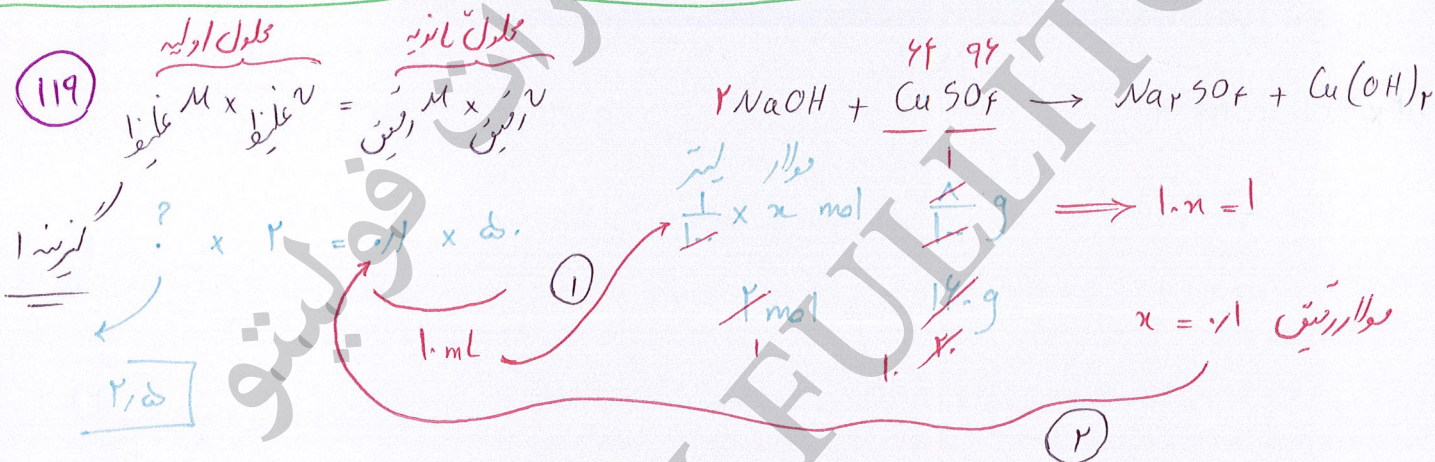 محلول اولیه محلول ثانویه
۱۱۹ M غلیظ × V غلیظ = M رقیق × V رقیق
۶۴ ۹۶
۲NaOH + CuSO۴ → Na۲SO۴ + Cu(OH)۲
گزینه ۱
? × ۲ = ۰/۱ × ۵۰
مولار لیتر
۱/۱۰۰ × x mol ۸/۱۰۰ g ⟹ ۱۰x = ۱
۱
۱
۱۰ mL
۲ mol ۱۶۰ g
۱ ۱۰ ۲۰
x = ۰/۱ مولار رقیق
۲/۵
۲
فولیتو
FULLITO